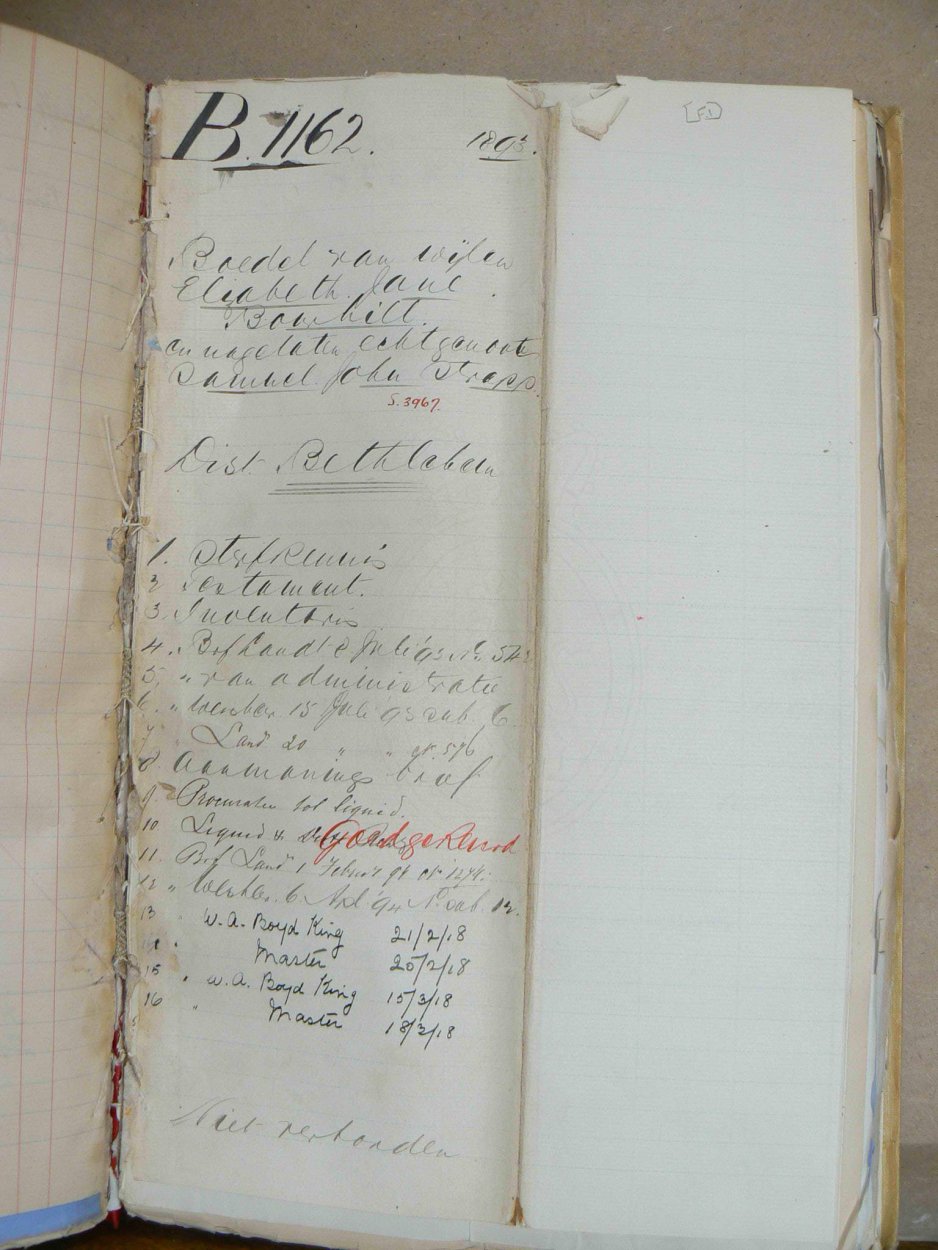 B. 1162. 1893.
[F1]
Boedel van wijlen
Elizabeth Jane
Bowhill.
en nagelaten echtgenoot
Samuel John Strapp.
S. 3967.
Dist Bethlehem
1. Sterfkennis
2 Testament.
3 Inventaris
4. Brf Landt 8 Juli '93 No. 543
5. " van administratie
6. " Weesheer 15 Juli 93 sub. 6
7 " Landt 20 " " No. 576
8 Aanmanings brief
9. Procuratie tot liquid.
10 Liquid & Goedgekeurd
11. Brf Landt 1 Febr. 94 No. 1274.
12 " Weesheer 6 Apl. '94 No. sub. 12.
13 " W. A. Boyd King 21/2/18
" Master 25/2/18
15 " W. A. Boyd King 15/3/18
16 " Master 18/3/18
Niet verbonden